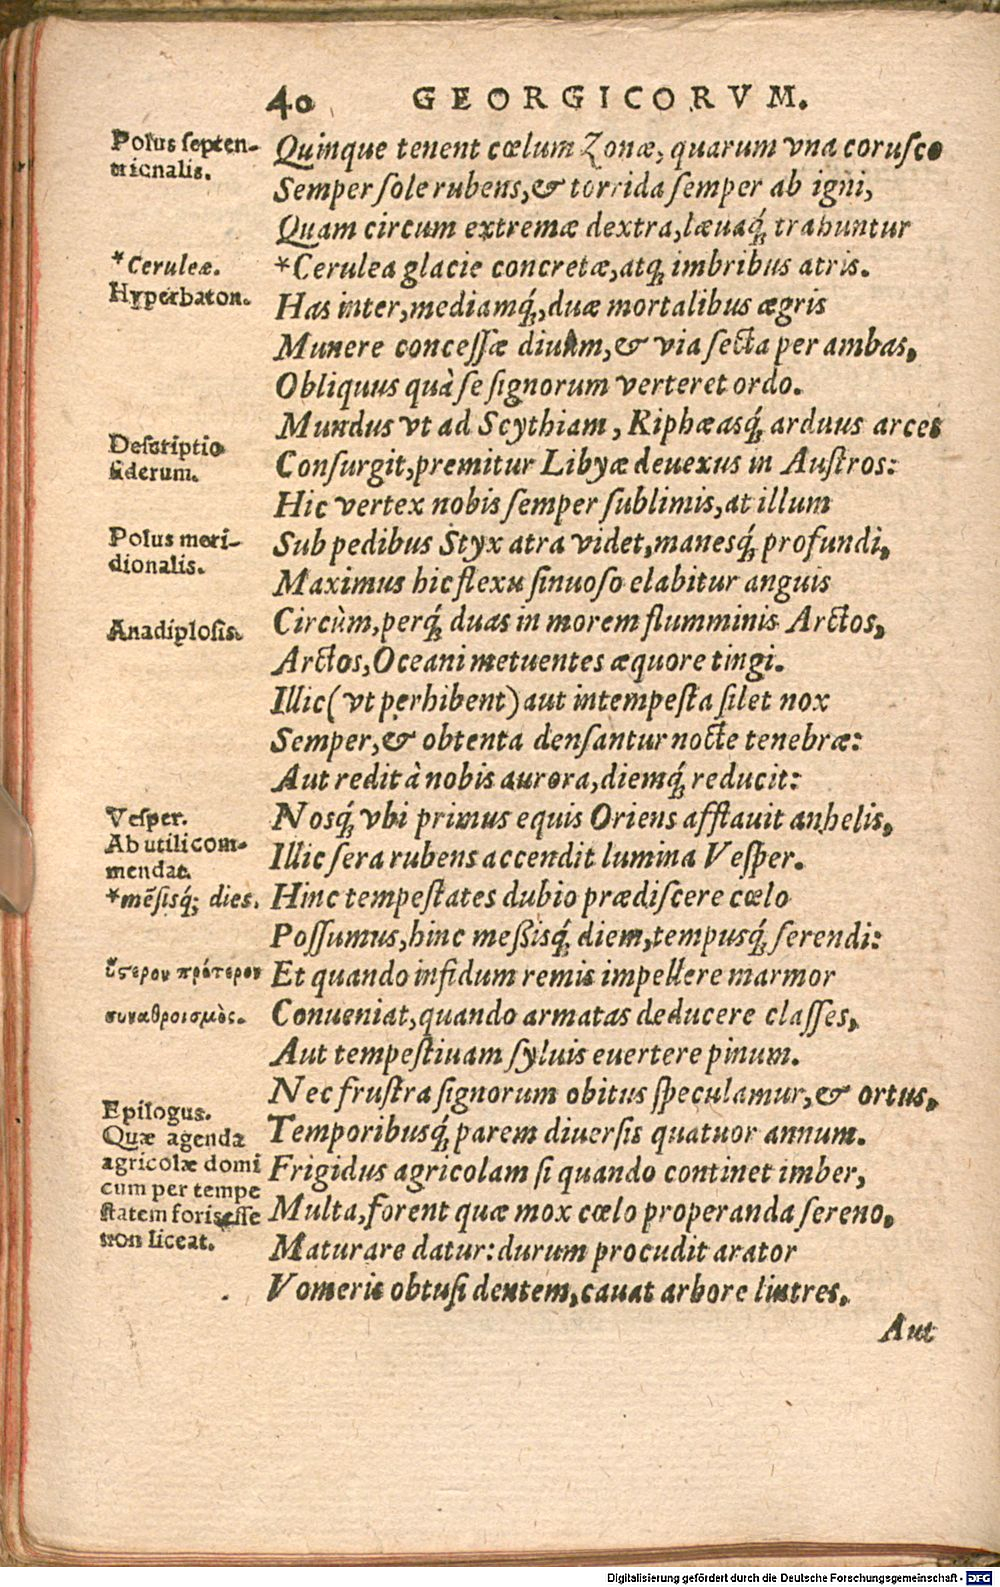 40 GEORGICORVM.
Polus septen-
trionalis.
Quinque tenent cœlum Zonæ, quarum vna corusco
Semper sole rubens, & torrida semper ab igni,
Quam circum extremæ dextra, læuaq́; trahuntur
*Ceruleæ.
*Cerulea glacie concretæ, atq; imbribus atris.
Hyperbaton.
Has inter, mediamq́;, duæ mortalibus ægris
Munere concessæ diuûm, & via secta per ambas,
Obliquus quà se signorum verteret ordo.
Mundus vt ad Scythiam, Riphæasq́; arduus arces
Descriptio
siderum.
Consurgit, premitur Libyæ deuexus in Austros:
Hic vertex nobis semper sublimis, at illum
Polus meri-
dionalis.
Sub pedibus Styx atra videt, manesq́; profundi,
Maximus hic flexu sinuoso elabitur anguis
Anadiplosis.
Circùm, perq́; duas in morem flumminis Arctos,
Arctos, Oceani metuentes æquore tingi.
Illic (vt perhibent) aut intempesta silet nox
Semper, & obtenta densantur nocte tenebræ:
Aut redit à nobis aurora, diemq́; reducit:
Vesper.
Nosq́; vbi primus equis Oriens afflauit anhelis,
Ab vtili com-
mendat.
Illic sera rubens accendit lumina Vesper.
*mēsisq́; dies.
Hinc tempestates dubio prædiscere cœlo
Possumus, hinc messisq́; diem, tempusq́; serendi:
ὕςερον πρότερον
Et quando infidum remis impellere marmor
συναθροισμὸς.
Conueniat, quando armatas deducere classes,
Aut tempestiuam syluis euertere pinum.
Nec frustra signorum obitus speculamur, & ortus,
Epilogus.
Quæ agenda
agricolæ domi
cum per tempe
statem foris esse
non liceat.
Temporibusq́; parem diuersis quatuor annum.
Frigidus agricolam si quando continet imber,
Multa, forent quæ mox cœlo properanda sereno,
Maturare datur: durum procudit arator
Vomeris obtusi dentem, cauat arbore lintres,
Aut
Digitalisierung gefördert durch die Deutsche Forschungsgemeinschaft - DFG